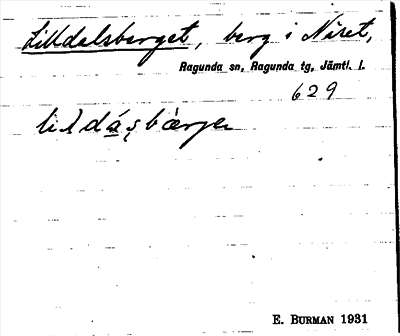 Lilldalsberget, berg i Näset,
Ragunda sn, Ragunda tg, Jämtl. l.
629
lildásbærje
E. BURMAN 1931